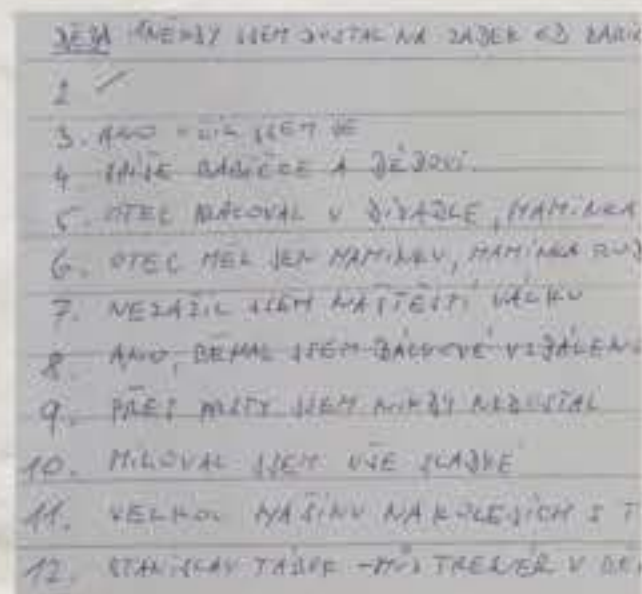 DĚDA 1 NĚKDY JSEM DOSTAL NA ZADEK OD
2
3. ANO UČIL JSEM SE
4. SPÍŠE BABIČCE A DĚDOVI.
5. OTEC PRACOVAL V DIVADLE, MAMINKA
6. OTEC MĚL JEN MAMINKU, MAMINKA
7. NEZAŽIL JSEM NAŠTĚSTÍ VÁLKU
8. ANO, BĚHAL JSEM DÁLKOVÉ
9. PŘES PRSTY JSEM NIKDY NEDOSTAL
10. MILOVAL JSEM VŠE SLADKÉ
11. VELKOU MAŠINU NA KOLEJÍCH S T
12. STANISLAV - MŮJ TRENÉR V